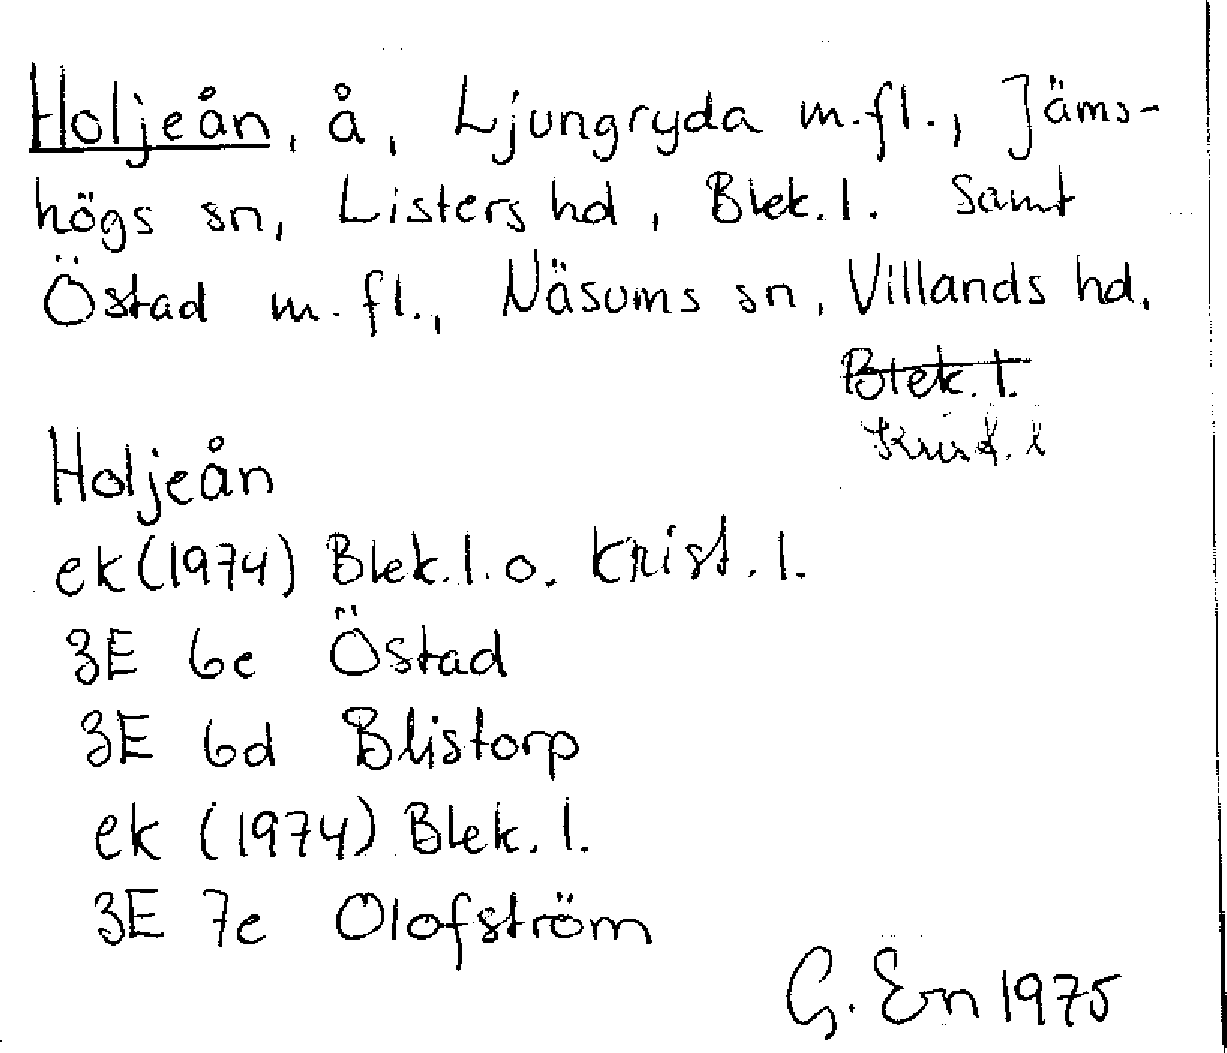 Holjeån, å, Ljungryda m.fl., Jäms-
högs sn, Listers hd, Blek. l. samt
Östad m. fl., Näsums sn, Villands hd.
Blek. l.
Krist. l
Holjeån
ek (1974) Blek. l. o. Krist. l.
3E 6e Östad
3E 6d Blistorp
ek (1974) Blek. l.
3E 7e Olofström
G. Ern 1975